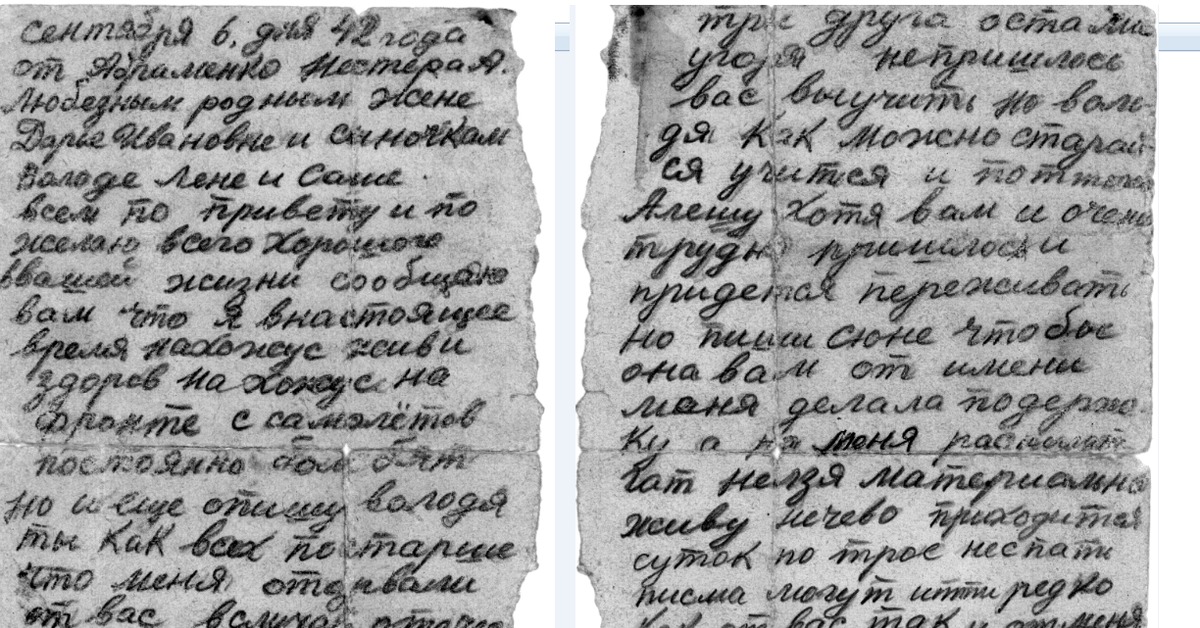 сентября 6, дня 42 года
от Абраменко Нестера А.
Любезным родным жене
Дарье Ивановне и сыночкам
Володе Лене и Саше
всем по привету и по
желаю всего хорошого
ввашей жизни сообщаю
вам что я внастоящее
время нахожус жив и
здоров нахожус на
фронте с самолётов
постоянно бомбят
но и еще опишу володя
ты как всех постарше
что меня оторвали
от вас
друга остали
непришлось
вас выучить но воло
дя как можно старай
ся учится и
Алешу хотя вам и очень
трудно пришлось и
придется переживать
но пиши сюне чтобы
она вам от имени
меня делала подержо
ку а на меня расчиты
ват нелзя материально
живу нечево приходится
суток по трое неспати
писма могут итти редко
как от вас так и отменя